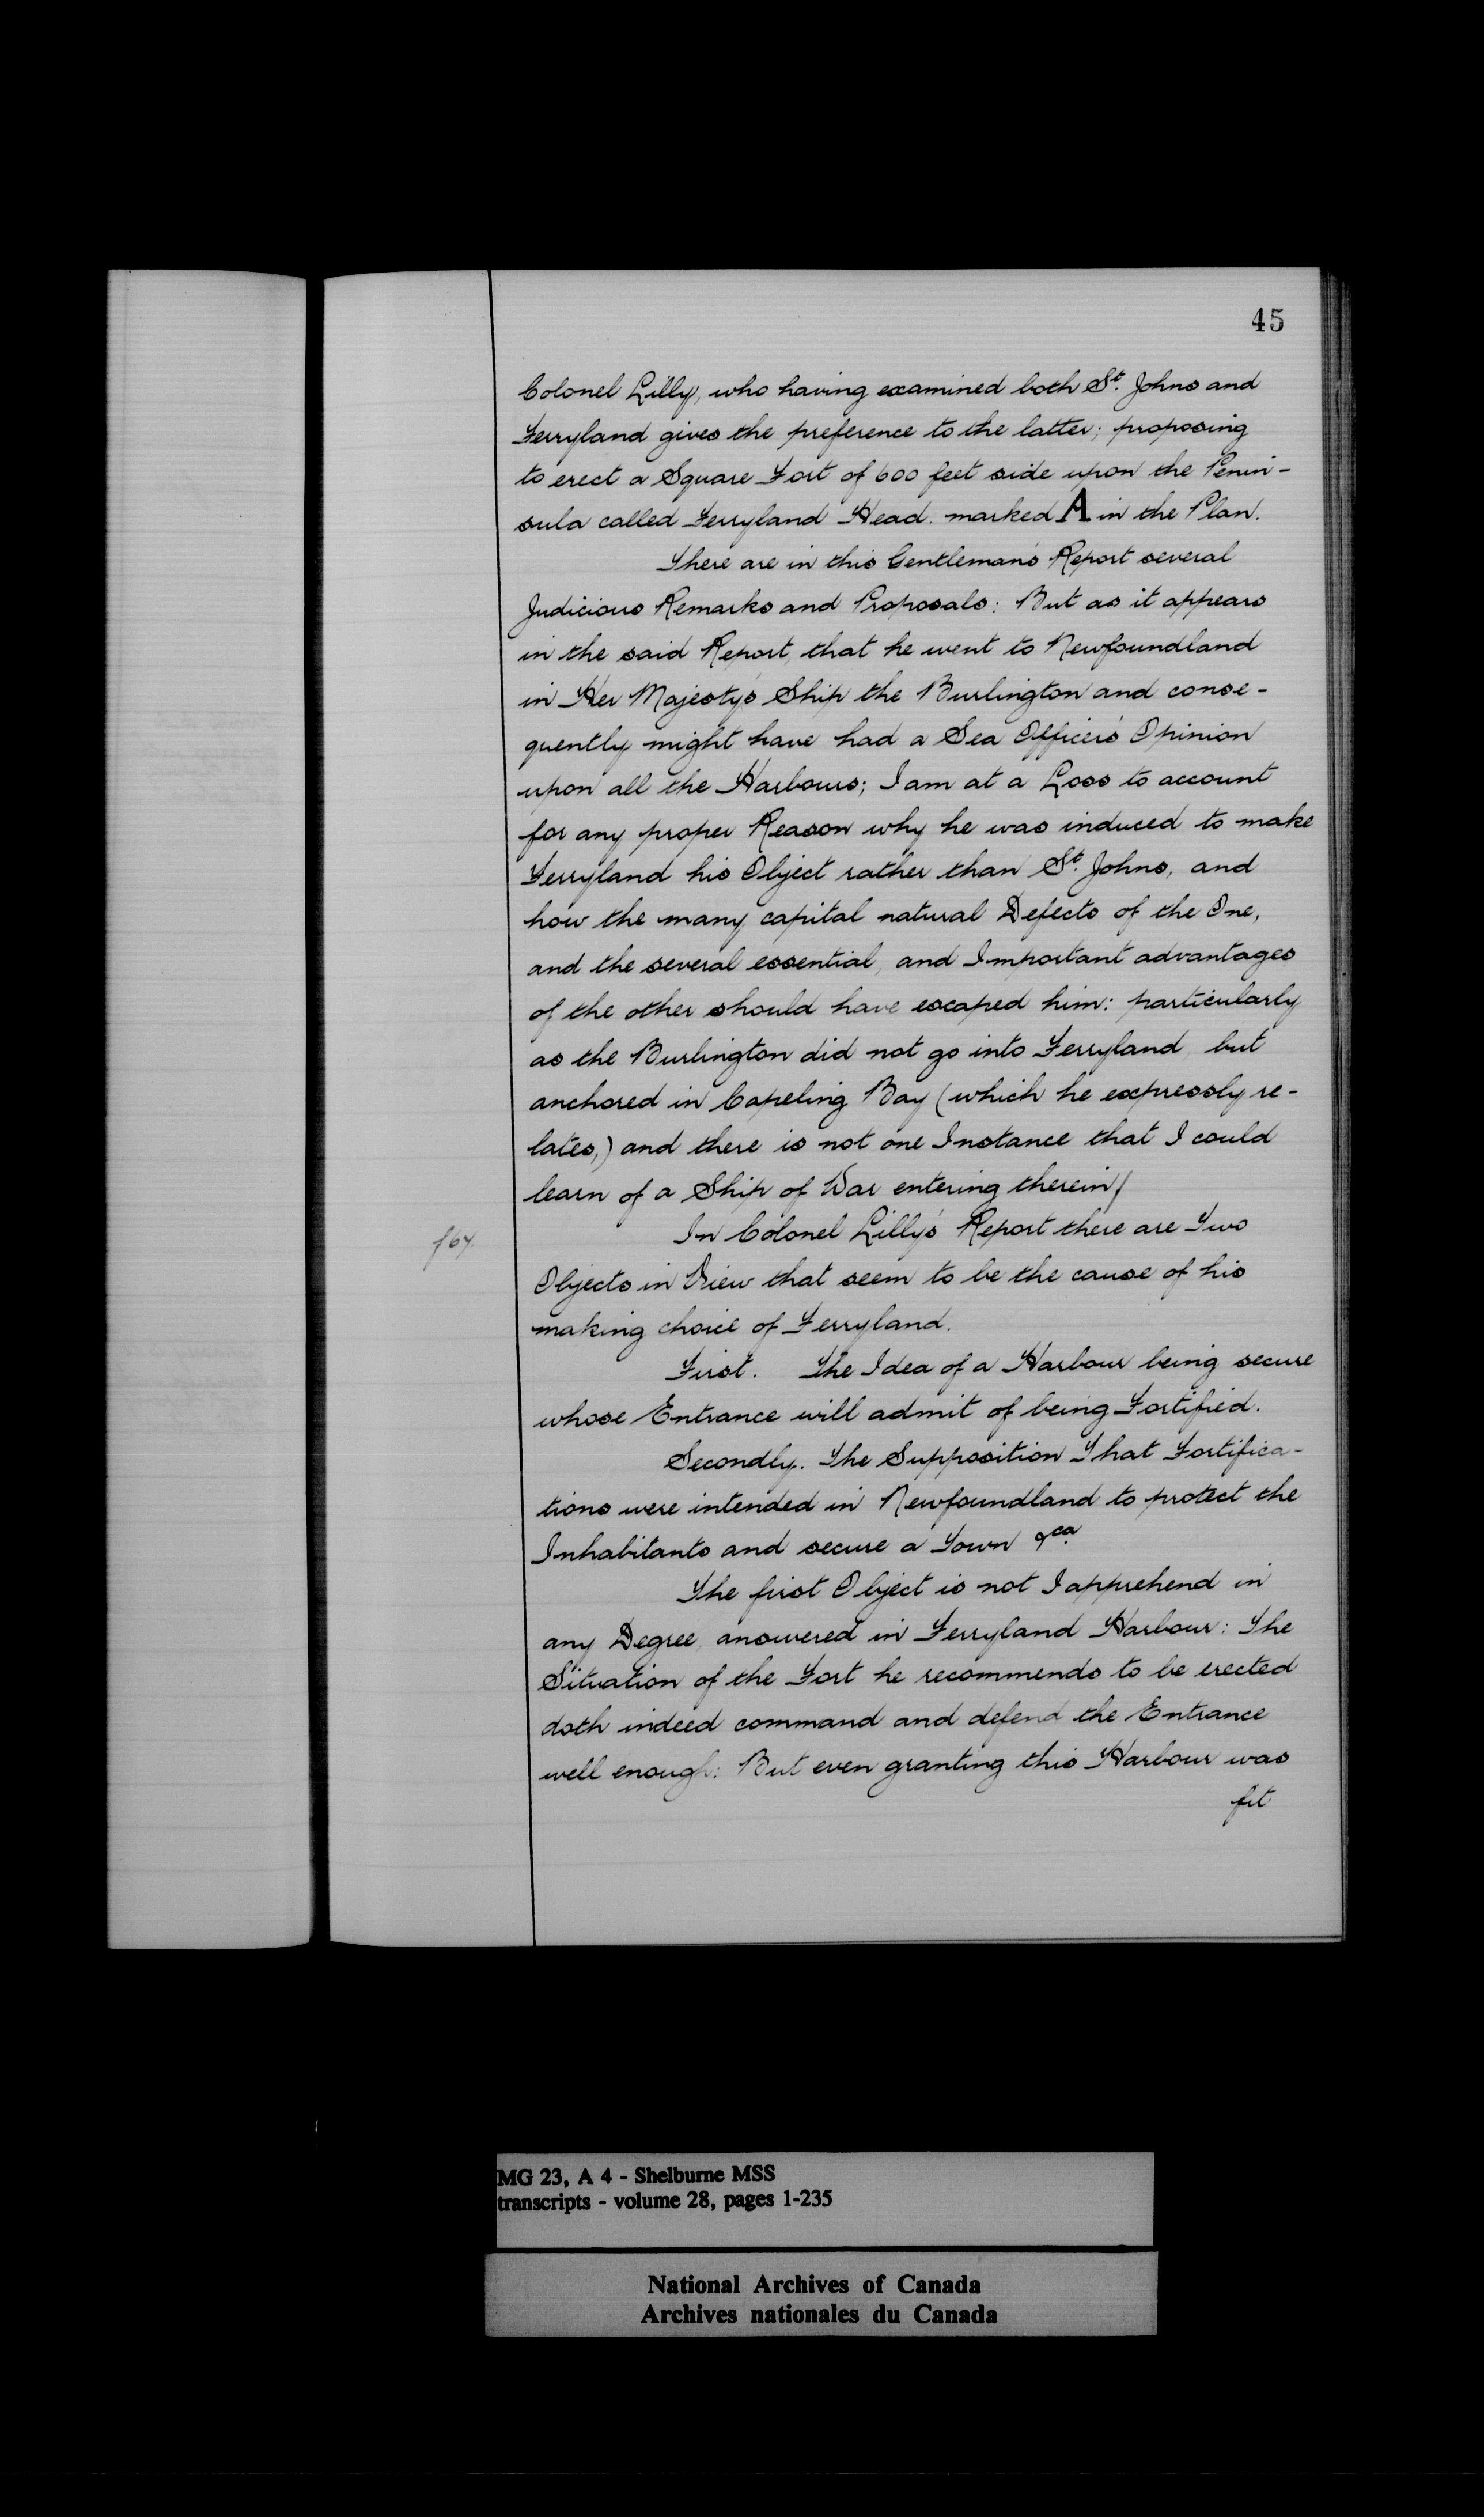 45
Colonel Lilly, who having examined both St. Johns and
Ferryland gives the preference to the latter; proposing
to erect a Square Fort of 600 feet side upon the Penin-
sula called Ferryland Head. marked A in the Plan.
There are in this Gentleman's Report several
Judicious Remarks and Proposals: But as it appears
in the said Report, that he went to Newfoundland
in Her Majesty's Ship the Burlington and conse-
quently might have had a Sea Officer's Opinion
upon all the Harbours; I am at a Loss to account
for any proper Reason why he was induced to make
Ferryland his Object rather than St. Johns, and
how the many capital natural Defects of the One,
and the several essential, and Important advantages
of the other should have escaped him: particularly
as the Burlington did not go into Ferryland, but
anchored in Capeling Bay (which he expressly re-
lates,) and there is not one Instance that I could
learn of a Ship of War entering therein/
f 67.
In Colonel Lilly's Report there are Two
Objects in View that seem to be the cause of his
making choice of Ferryland.
First. The Idea of a Harbour being secure
whose Entrance will admit of being Fortified.
Secondly. The Supposition That Fortifica-
tions were intended in Newfoundland to protect the
Inhabitants and secure a Town &ca.
The first Object is not I apprehend in
any Degree, answered in Ferryland Harbour: The
Situation of the Fort he recommends to be erected
doth indeed command and defend the Entrance
well enough: But even granting this Harbour was
fit
MG 23, A 4 - Shelburne MSS
transcripts - volume 28, pages 1-235
National Archives of Canada
Archives nationales du Canada